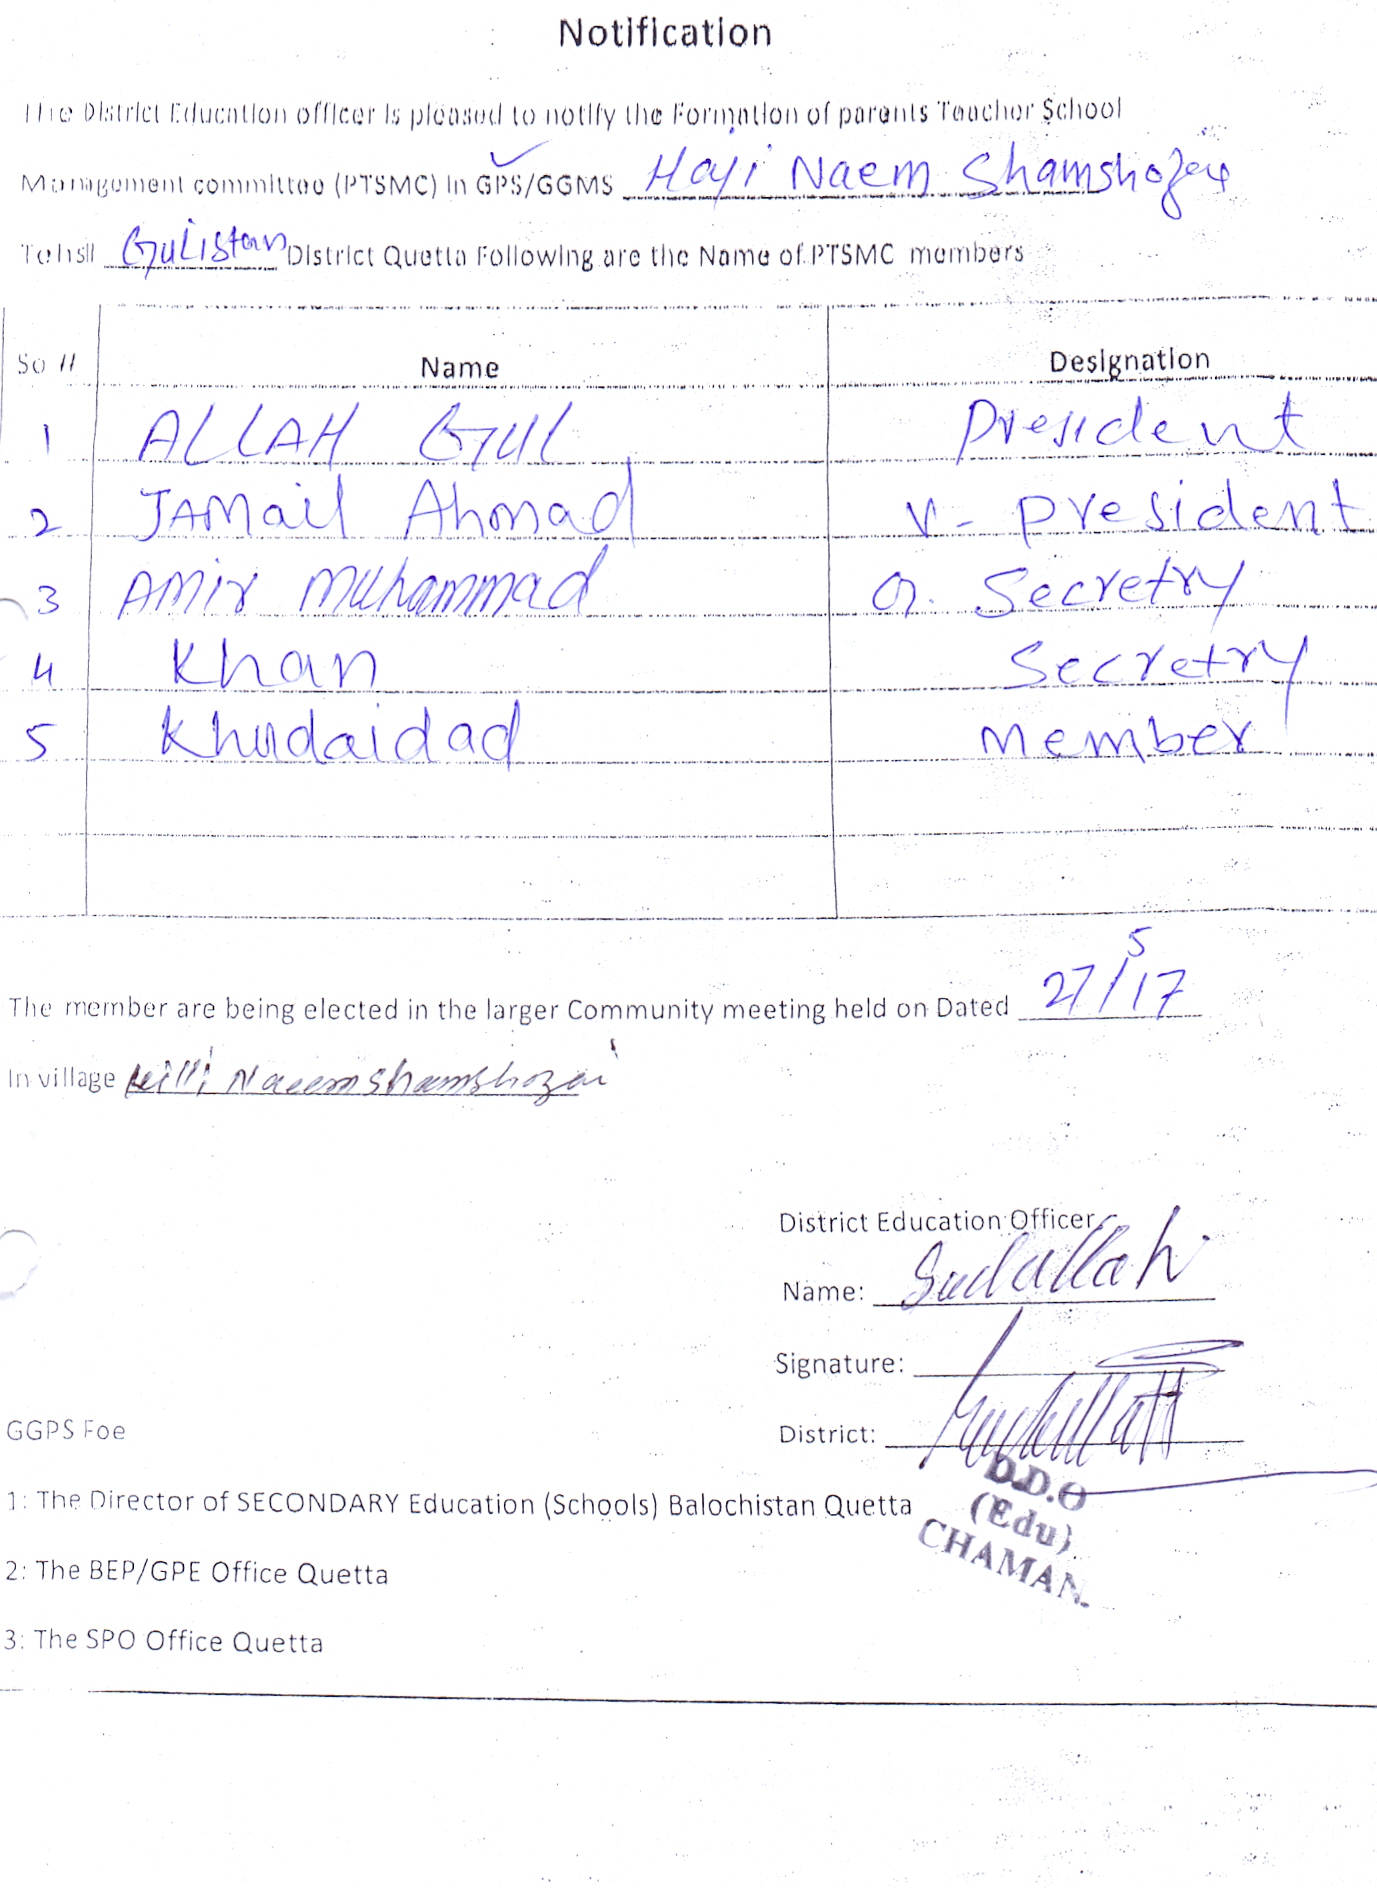 Notification
The District Education officer is pleased to notify the Formation of parents Teacher School
Management committee (PTSMC) In GPS/GGMS Haji Naem Shamshozai
Tehsil Gulistan District Quetta Following are the Name of PTSMC members
So # Name Designation
1 ALLAH GUL President
2 JAMail Ahmad V- President
3 AMir Muhammad G. Secretry
4 Khan Secretry
5 Khudaidad Member
The member are being elected in the larger Community meeting held on Dated 27/5/17
In village Killi Naeem Shamshozai
District Education Officer
Name: Sadullah
Signature:
District:
GGPS Foe
D.D.O
(Edu)
CHAMAN.
1: The Director of SECONDARY Education (Schools) Balochistan Quetta
2: The BEP/GPE Office Quetta
3: The SPO Office Quetta